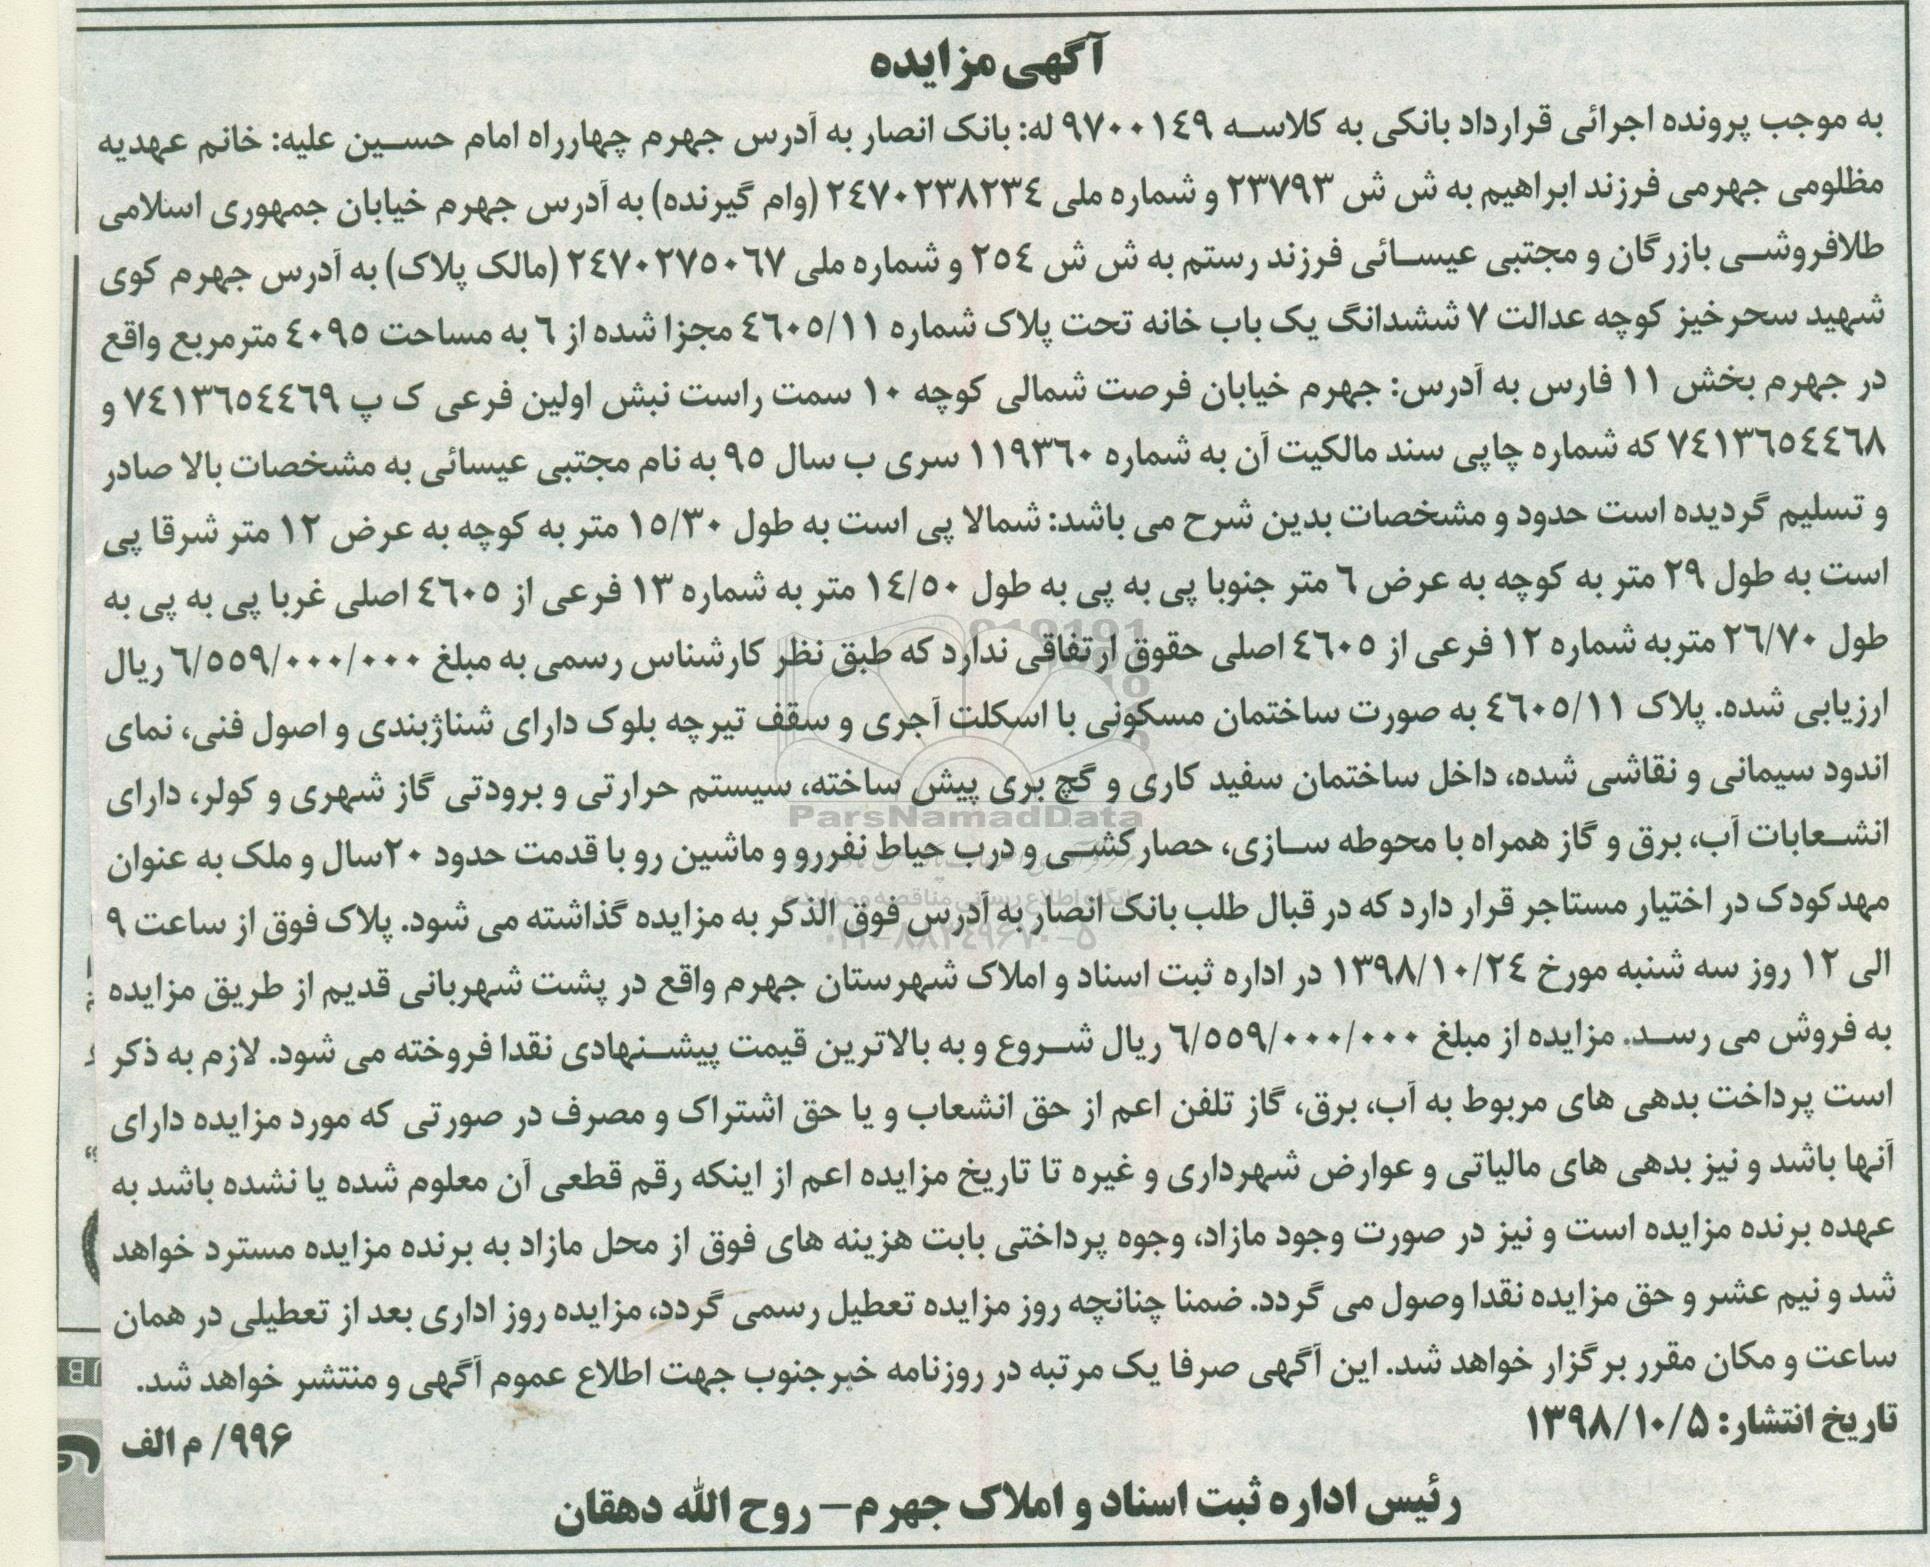 آگهی مزایده
به موجب پرونده اجرائی قرارداد بانکی به کلاسه ٩٧٠٠١٤٩ له: بانک انصار به آدرس جهرم چهارراه امام حسین علیه: خانم عهدیه
مظلومی جهرمی فرزند ابراهیم به ش ش ٢٣٧٩٣ و شماره ملی ٢٤٧٠٢٣٨٢٣٤ (وام گیرنده) به آدرس جهرم خیابان جمهوری اسلامی
طلافروشی بازرگان و مجتبی عیسائی فرزند رستم به ش ش ٢٥٤ و شماره ملی ٢٤٧٠٢٧٥٠٦٧ (مالک پلاک) به آدرس جهرم کوی
شهید سحرخیز کوچه عدالت ٧ ششدانگ یک باب خانه تحت پلاک شماره ٤٦٠٥/١١ مجزا شده از ٦ به مساحت ٤٠٩٥ مترمربع واقع
در جهرم بخش ١١ فارس به آدرس: جهرم خیابان فرصت شمالی کوچه ١٠ سمت راست نبش اولین فرعی ک پ ٧٤١٣٦٥٤٤٦٩ و
٧٤١٣٦٥٤٤٦٨ که شماره چاپی سند مالکیت آن به شماره ١١٩٣٦٠ سری ب سال ٩٥ به نام مجتبی عیسائی به مشخصات بالا صادر
و تسلیم گردیده است حدود و مشخصات بدین شرح می باشد: شمالا پی است به طول ١٥/٣٠ متر به کوچه به عرض ١٢ متر شرقا پی
است به طول ٢٩ متر به کوچه به عرض ٦ متر جنوبا پی به پی به طول ١٤/٥٠ متر به شماره ١٣ فرعی از ٤٦٠٥ اصلی غربا پی به پی به
طول ٢٦/٧٠ متربه شماره ١٢ فرعی از ٤٦٠٥ اصلی حقوق ارتفاقی ندارد که طبق نظر کارشناس رسمی به مبلغ ٦/٥٥٩/٠٠٠/٠٠٠ ریال
ارزیابی شده. پلاک ٤٦٠٥/١١ به صورت ساختمان مسکونی با اسکلت آجری و سقف تیرچه بلوک دارای شناژبندی و اصول فنی، نمای
اندود سیمانی و نقاشی شده، داخل ساختمان سفید کاری و گچ بری پیش ساخته، سیستم حرارتی و برودتی گاز شهری و کولر، دارای
انشعابات آب، برق و گاز همراه با محوطه سازی، حصارکشی و درب حیاط نفررو و ماشین رو با قدمت حدود ٢٠سال و ملک به عنوان
مهدکودک در اختیار مستاجر قرار دارد که در قبال طلب بانک انصار به آدرس فوق الذکر به مزایده گذاشته می شود. پلاک فوق از ساعت ٩
الی ١٢ روز سه شنبه مورخ ١٣٩٨/١٠/٢٤ در اداره ثبت اسناد و املاک شهرستان جهرم واقع در پشت شهربانی قدیم از طریق مزایده
به فروش می رسد. مزایده از مبلغ ٦/٥٥٩/٠٠٠/٠٠٠ ریال شروع و به بالاترین قیمت پیشنهادی نقدا فروخته می شود. لازم به ذکر
است پرداخت بدهی های مربوط به آب، برق، گاز تلفن اعم از حق انشعاب و یا حق اشتراک و مصرف در صورتی که مورد مزایده دارای
آنها باشد و نیز بدهی های مالیاتی و عوارض شهرداری و غیره تا تاریخ مزایده اعم از اینکه رقم قطعی آن معلوم شده یا نشده باشد به
عهده برنده مزایده است و نیز در صورت وجود مازاد، وجوه پرداختی بابت هزینه های فوق از محل مازاد به برنده مزایده مسترد خواهد
شد و نیم عشر و حق مزایده نقدا وصول می گردد. ضمنا چنانچه روز مزایده تعطیل رسمی گردد، مزایده روز اداری بعد از تعطیلی در همان
ساعت و مکان مقرر برگزار خواهد شد. این آگهی صرفا یک مرتبه در روزنامه خبرجنوب جهت اطلاع عموم آگهی و منتشر خواهد شد.
تاریخ انتشار: ۱۳۹۸/۱۰/۵ ۹۹۶/ م الف
رئیس اداره ثبت اسناد و املاک جهرم– روح الله دهقان
ParsNamadData
پایگاه اطلاع رسانی مناقصه و مزایده
۰۲۱-۸۸۳۴۹۶۷۰-۵